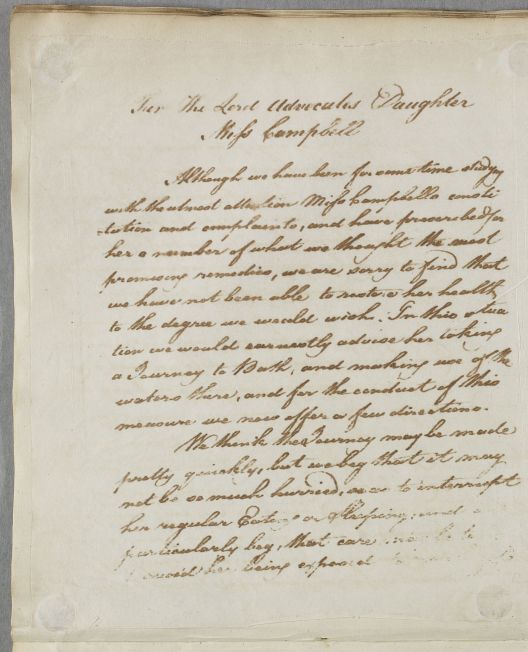 For The Lord Advocates Daughter
Miss Campbell
Although we have been for some time studying
with the utmost attention Miss Campbells consti
-tution and complaints, and have prescribed for
her a number of what we thought the most
promising remedies, we are sorry to find that
we have not been able to restore her health
to the degree we would wish. In this situa
tion we would earnestly advise her taking
a Journey to Bath, and making use of the
waters there, and for the conduct of this
measure we now offer a few directions.
We think the Journey may be made
pretty quickly, but we beg that it may
not be so much hurried, as to interrupt
her regular Eating or Sleeping; and
particularly beg, that care be
avoid her being exposed